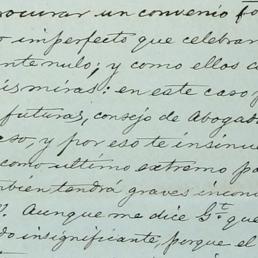 procurar un convenio
imperfecto que celebran
nulo; y como ellos
miras: en este caso y
futuras, consejo de Abogado
caso, y por eso te insinue
como ultimo extremo pa
bien tendrá graves incon
Aunque me dice G.t que
do insignificante, porque el